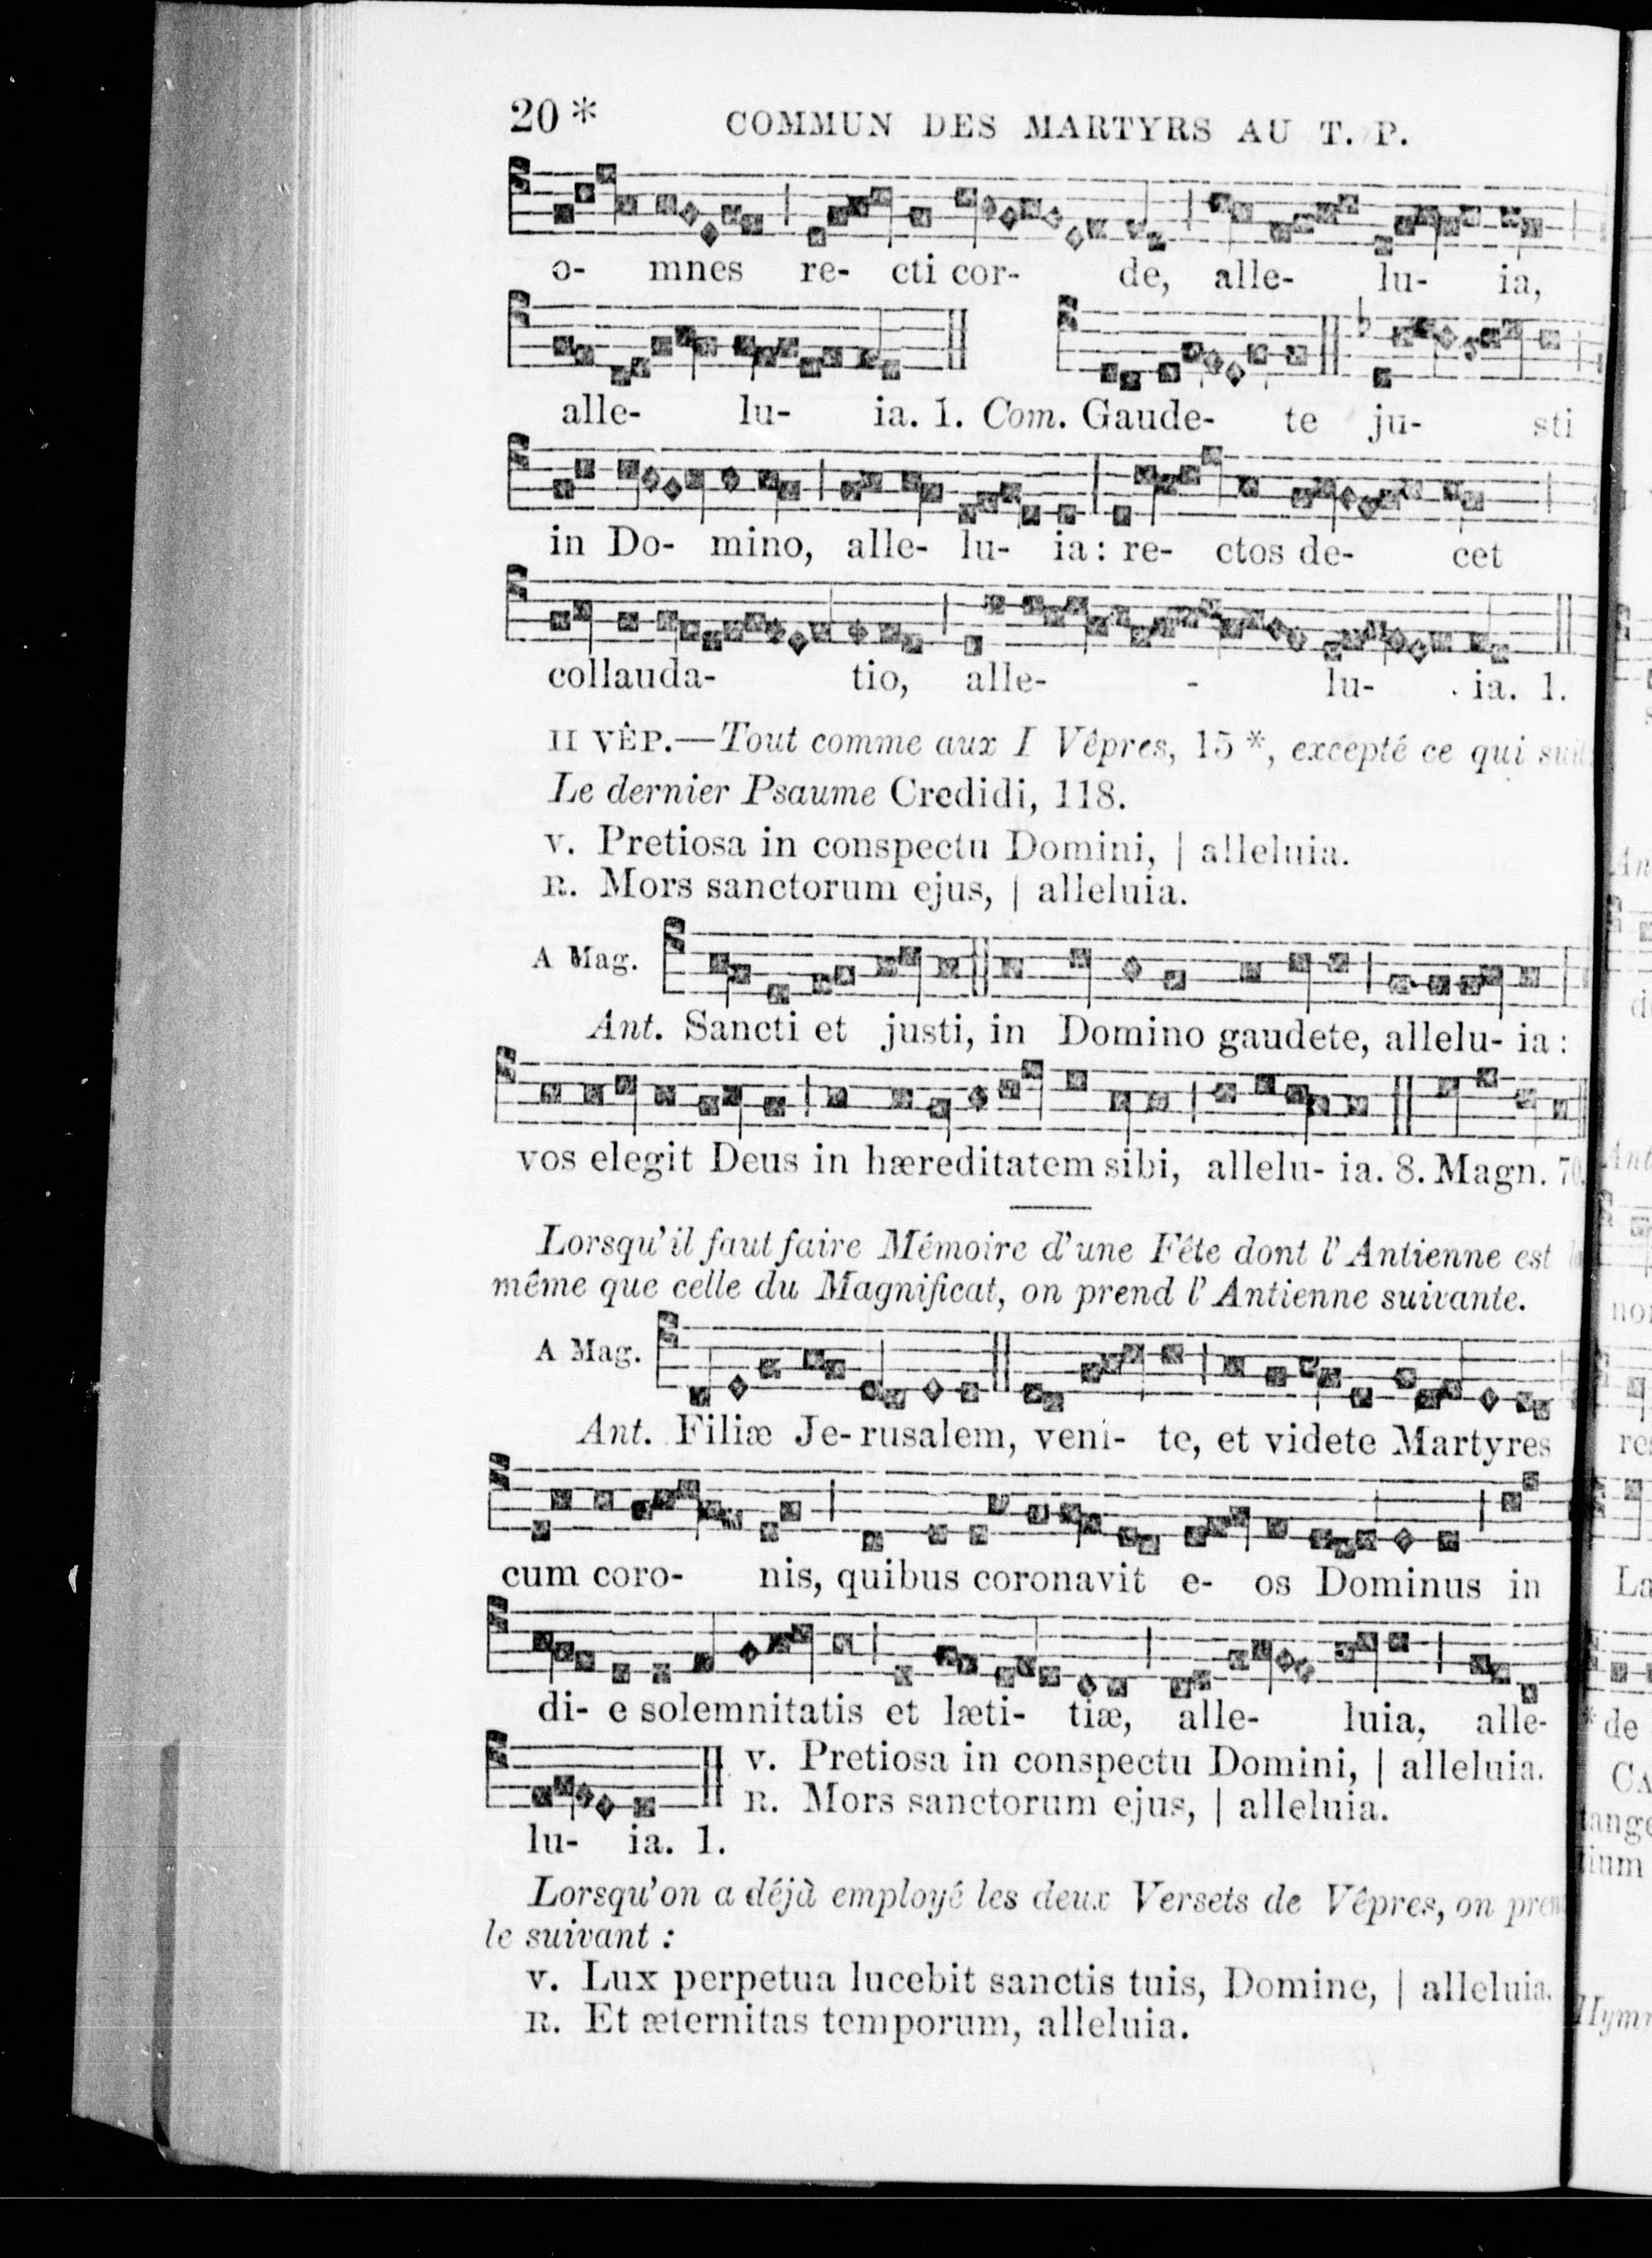 20 * COMMUN DES MARTYRS AU T. P.
o- mnes re- cti cor- de, alle- lu- ia,
alle- lu- ia. 1. Com. Gaude- te ju- sti
in Do- mino, alle- lu- ia : re- ctos de- cet
collauda- tio, alle- - lu- ia. 1.
II VÊP.—Tout comme aux I Vêpres, 15 *, excepté ce qui suit
Le dernier Psaume Credidi, 118.
V. Pretiosa in conspectu Domini, | alleluia.
R. Mors sanctorum ejus, | alleluia.
A Mag.
Ant. Sancti et justi, in Domino gaudete, allelu- ia :
vos elegit Deus in hæreditatem sibi, allelu- ia. 8. Magn. 70.
Lorsqu'il faut faire Mémoire d'une Fête dont l'Antienne est
même que celle du Magnificat, on prend l'Antienne suivante.
A Mag.
Ant. Filiæ Je- rusalem, veni- te, et videte Martyres
cum coro- nis, quibus coronavit e- os Dominus in
di- e solemnitatis et læti- tiæ, alle- luia, alle-
V. Pretiosa in conspectu Domini, | alleluia.
R. Mors sanctorum ejus, | alleluia.
lu- ia. 1.
Lorsqu'on a déjà employé les deux Versets de Vêpres, on pren
le suivant :
V. Lux perpetua lucebit sanctis tuis, Domine, | alleluia.
R. Et æternitas temporum, alleluia.